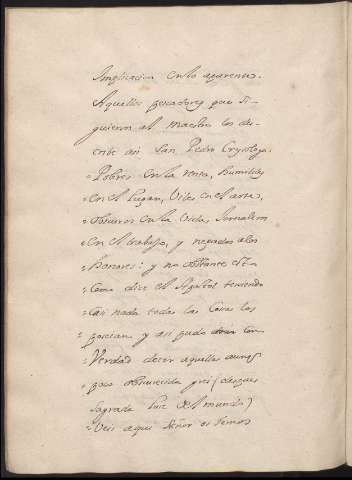 implicacion en lo aparente.
Aquellos pescadores que si-
guieron al maestro los des-
cribe asi San Pedro Crysologo,
"Pobres en la renta, humildes
"en el lugar, viles en el arte,
"obscuros en la vida, Jornaleros
"en el trabajo, y negados a los
"honores: y no obstante esto
"como dice el Apostol teniendo
"casi nada todas las cosas las
poseian y asi pudo con
"Verdad decir aquella aunq.
"poco obscurecida pero (despues
"sagrada luz del mundo)
"Veis aqui Señor os hemos